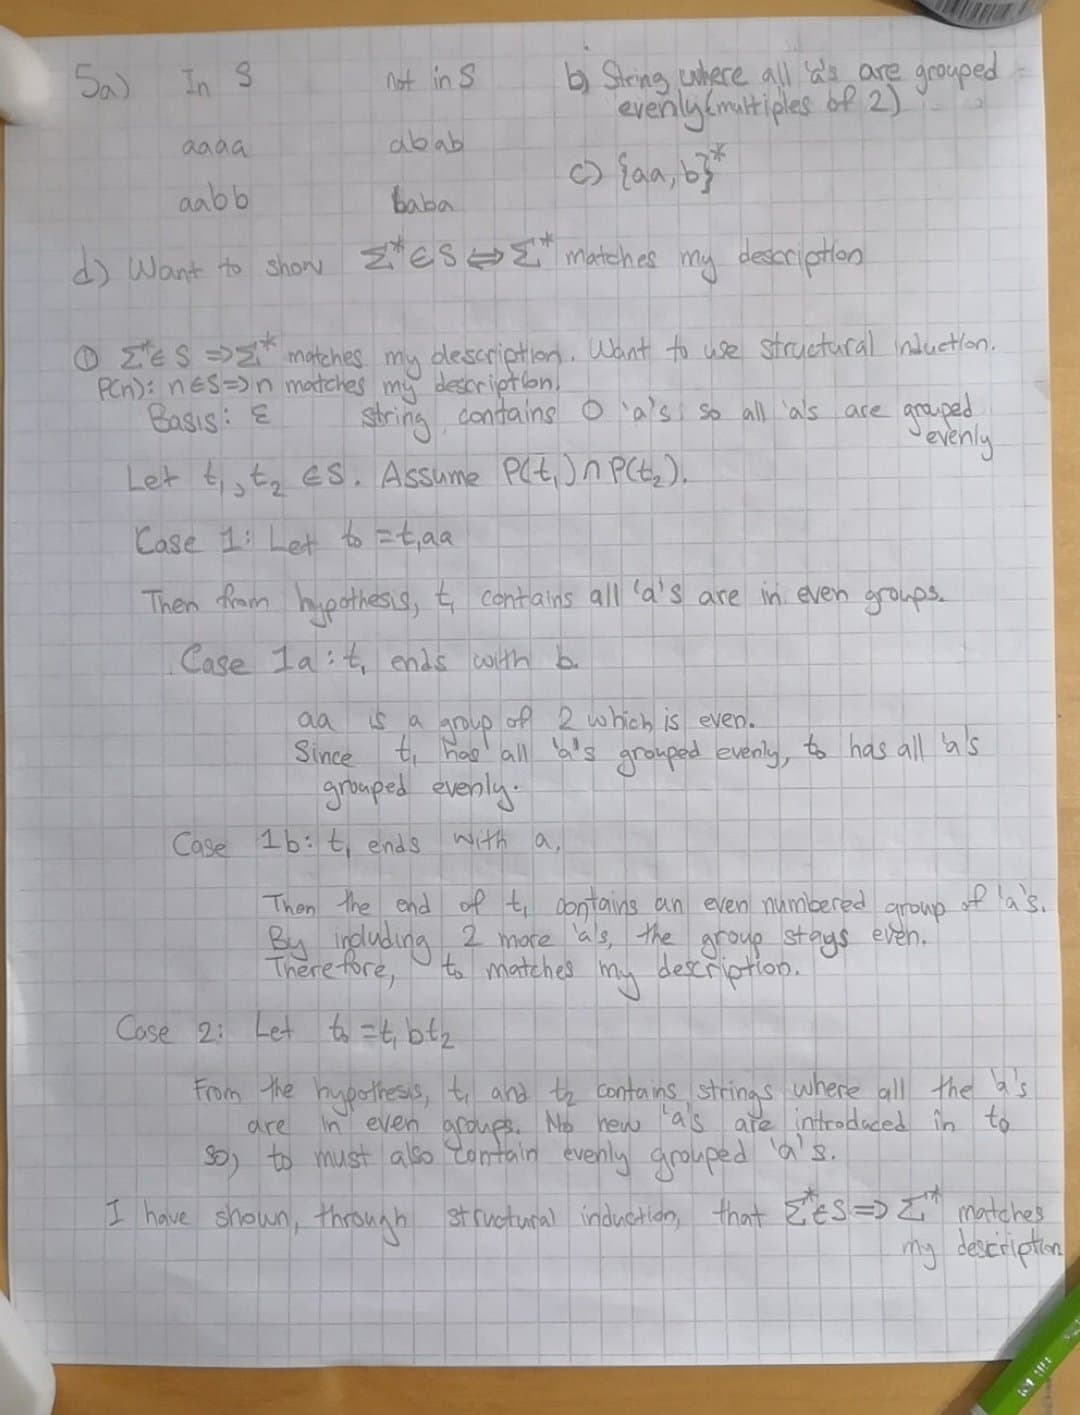 5a) In S not in S b) String where all 'a's are grouped
evenly (multiples of 2)
aaaa abab
c) {aa, b}*
aabb baba
d) Want to show Σ* ∈ S ⇔ Σ* matches my description
① Σ* ∈ S ⇒ Σ* matches my description. Want to use structural induction.
P(n): n ∈ S ⇒ n matches my description.
Basis: ε string contains 0 'a's so all 'a's are grouped
evenly
Let t₁, t₂ ∈ S. Assume P(t₁) ∩ P(t₂).
Case 1: Let t₀ = t₁aa
Then from hypothesis, t₁ contains all 'a's are in even groups.
Case 1a: t₁ ends with b.
aa is a group of 2 which is even.
Since t₁ has all 'a's grouped evenly, t₀ has all 'a's
grouped evenly.
Case 1b: t₁ ends with a.
Then the end of t₁ contains an even numbered group of 'a's.
By including 2 more 'a's, the group stays even.
Therefore, t₀ matches my description.
Case 2: Let t₀ = t₁bt₂
From the hypothesis, t₁ and t₂ contains strings where all the 'a's
are in even groups. No new 'a's are introduced in t₀
so, t₀ must also contain evenly grouped 'a's.
I have shown, through structural induction, that Σ* ∈ S ⇒ Σ* matches
my description